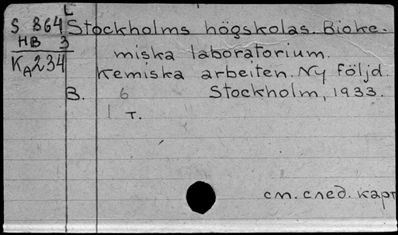 L
S 864 Stockholms högskolas. Bioke-
HB 3 miska laboratorium.
KA234 Kemiska arbeiten. Ny följd.
B. 6 Stockholm, 1933.
1 т.
см. след. карт